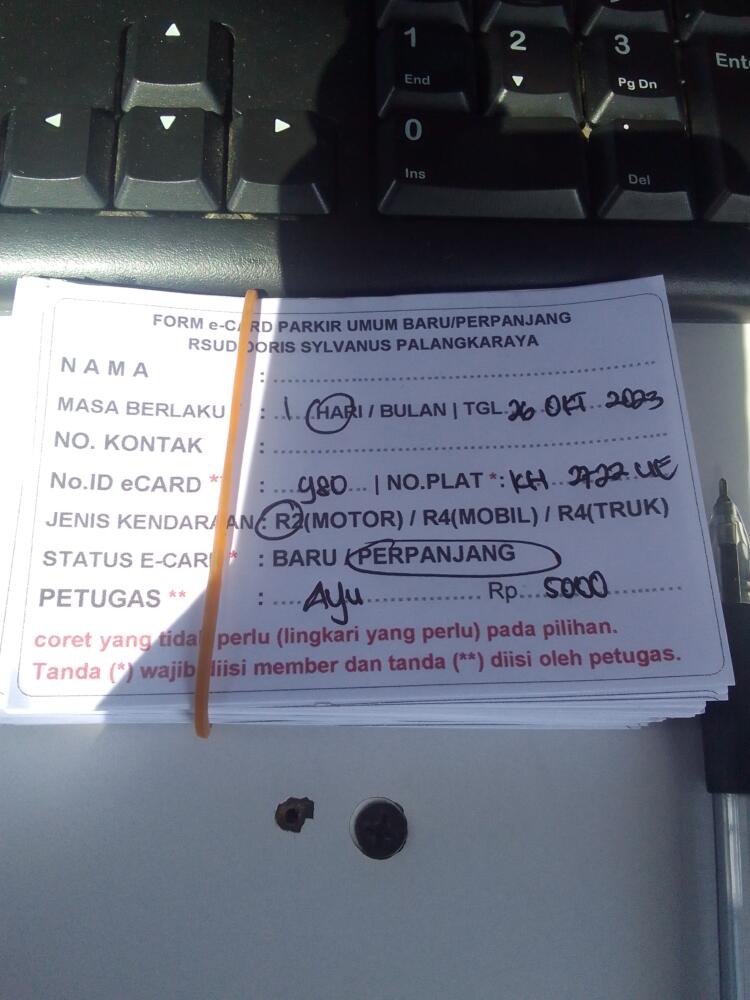 1
End
2
3
Pg Dn
0
Ins
Del
FORM e-CARD PARKIR UMUM BARU/PERPANJANG
RSUD DORIS SYLVANUS PALANGKARAYA
N A M A :
MASA BERLAKU : 1 HARI / BULAN | TGL 26 OKT 2023
NO. KONTAK :
No.ID eCARD * : 980 | NO.PLAT *: KH 2722 UE
JENIS KENDARAAN : R2(MOTOR) / R4(MOBIL) / R4(TRUK)
STATUS E-CARD * : BARU / PERPANJANG
PETUGAS ** : Ayu Rp. 5000
coret yang tidak perlu (lingkari yang perlu) pada pilihan.
Tanda (*) wajib diisi member dan tanda (**) diisi oleh petugas.